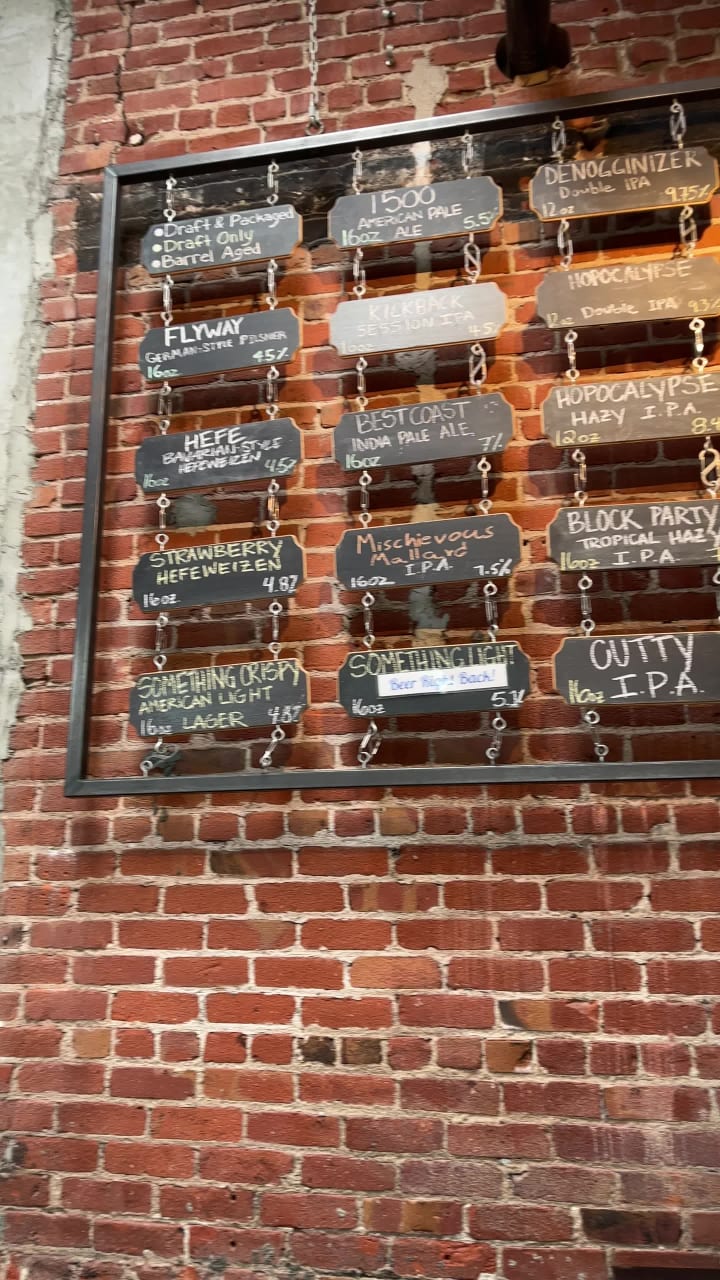 •Draft & Packaged
•Draft Only
•Barrel Aged
FLYWAY
GERMAN-STYLE PILSNER
16oz 4.5%
HEFE
BAVARIAN-STYLE
HEFEWEIZEN
16oz 4.5%
STRAWBERRY
HEFEWEIZEN
16oz 4.8%
SOMETHING CRISPY
AMERICAN LIGHT
16oz LAGER 4.8%
1500
AMERICAN PALE
16oz ALE 5.5%
KICKBACK
SESSION IPA
16oz 4.5%
BEST COAST
INDIA PALE ALE
16oz 7%
Mischievous
Mallard
16oz I.P.A. 7.5%
SOMETHING LIGHT
Beer Right Back!
16oz 5.1%
DENOGGINIZER
Double IPA
12oz 9.75%
HOPOCALYPSE
12oz Double IPA 9.3%
HOPOCALYPSE
HAZY I.P.A.
12oz 8.4
BLOCK PARTY
TROPICAL HAZY
16oz I.P.A.
CUTTY
16oz I.P.A.